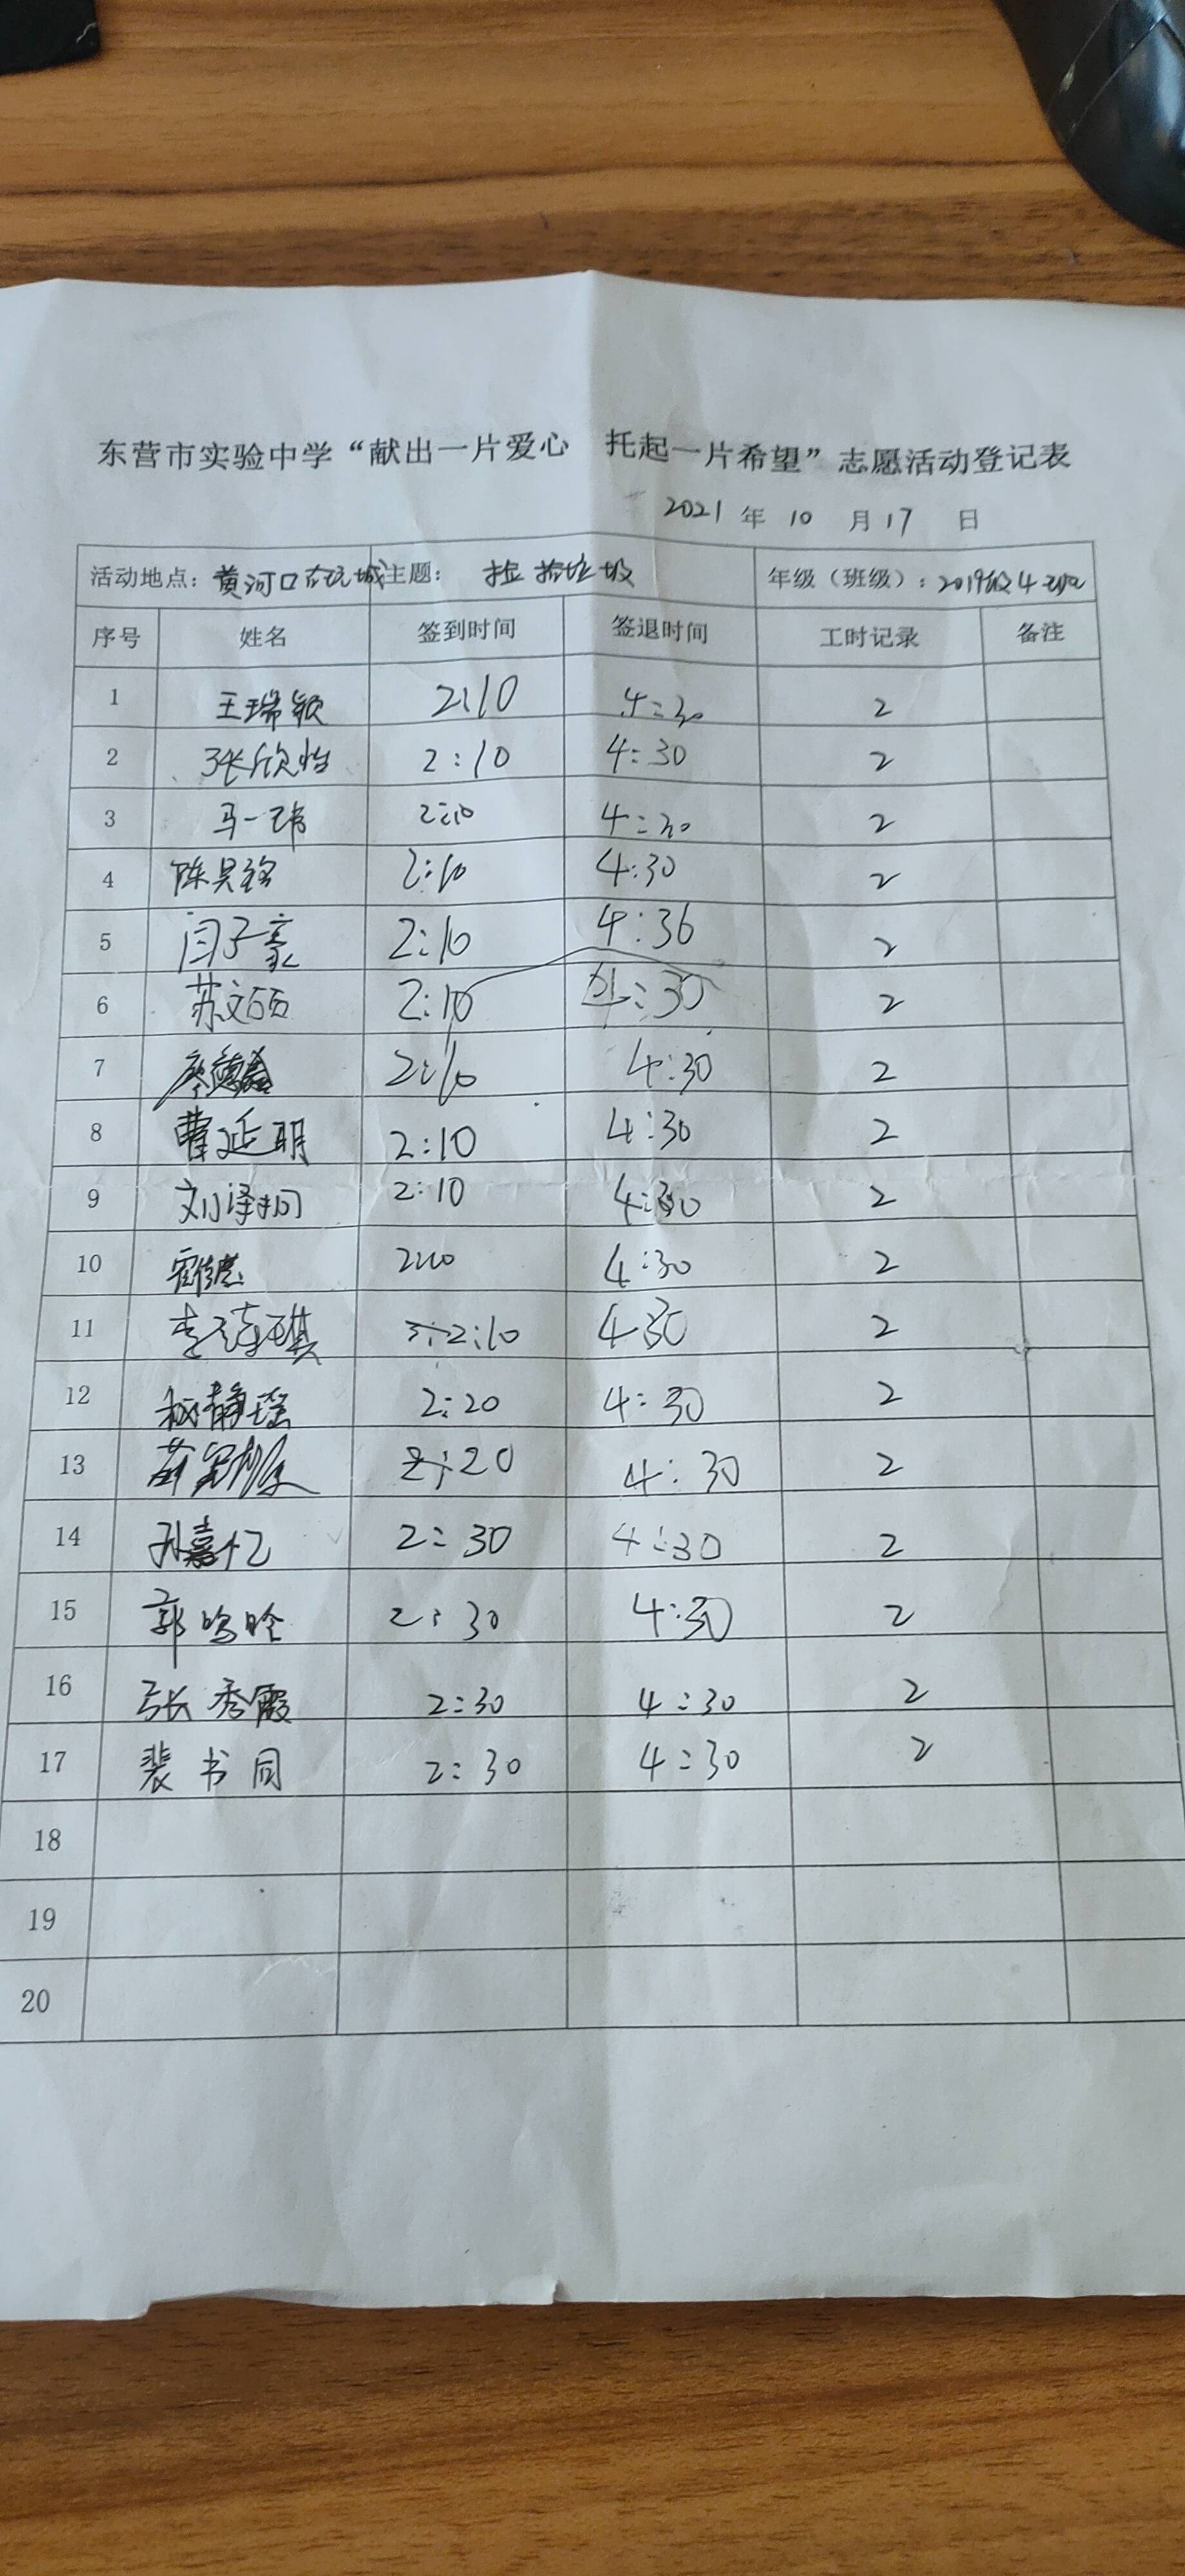 东营市实验中学“献出一片爱心 托起一片希望”志愿活动登记表
2021 年 10 月 17 日
活动地点：黄河口 城 主题： 捡拾垃圾 年级（班级）：2019级4
序号 姓名 签到时间 签退时间 工时记录 备注
1 王瑞颖 2:10 4:30 2
2 张欣怡 2:10 4:30 2
3 马一玮 2:10 4:30 2
4 陈昊铭 2:10 4:30 2
5 闫子豪 2:10 4:36 2
6 苏文硕 2:10 4:30 2
7 2:10 4:30 2
8 曹延明 2:10 4:30 2
9 刘泽 2:10 4:30 2
10 2:10 4:30 2
11 李 琪 2:10 430 2
12 静瑶 2:20 4:30 2
13 2:20 4:30 2
14 孙嘉忆 2:30 4:30 2
15 郭 2:30 4:30 2
16 张秀霞 2:30 4:30 2
17 裴书同 2:30 4:30 2
18
19
20